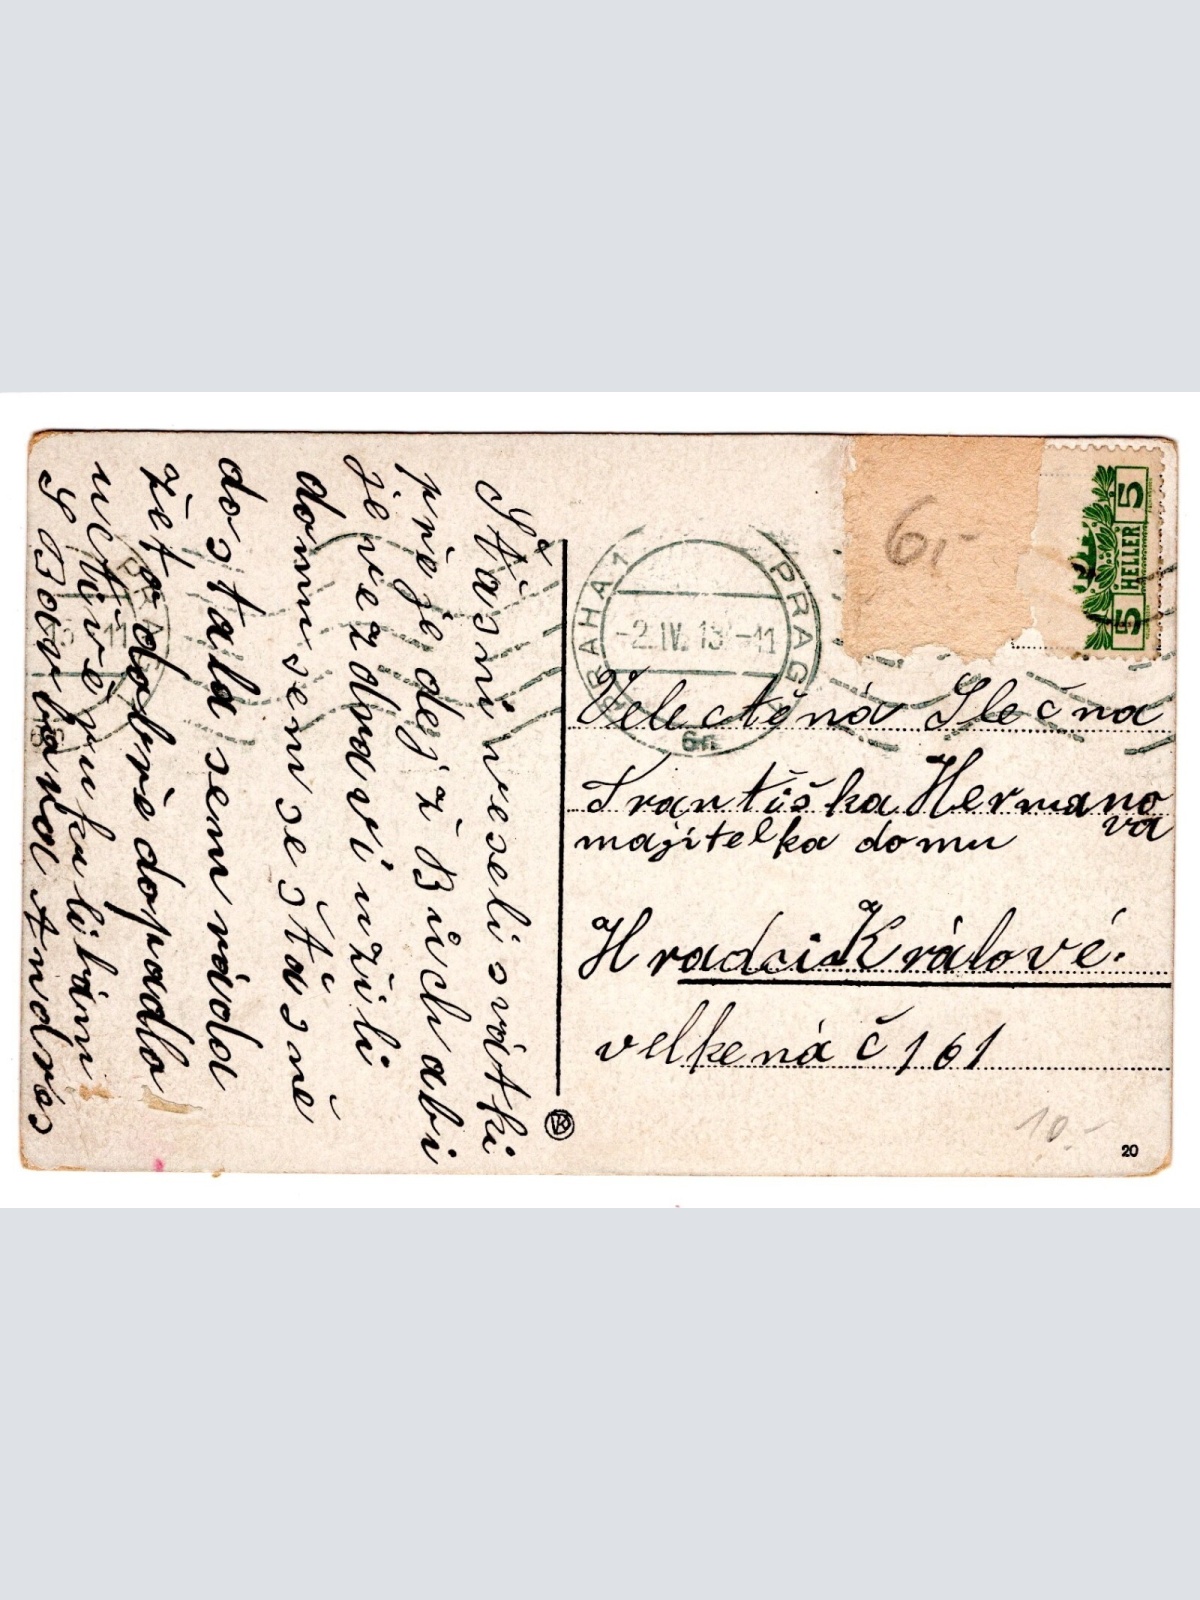 Šťasni veseli svátki
přeje dejž Bůch abi
je ve zdraví užili
domu sem se šťasně
dostala sem ráda
žeto dobře dopadlo
uctivě ruku libám
S Bour bá Andrós
PRAHA 1 PRAG
-2.IV.13-11
6n
5 HELLER 5
6,-
Velectěná Slečna
Františka Hermano
va
majitelka domu
Hradci Králové.
velkená č 161
10.-
20